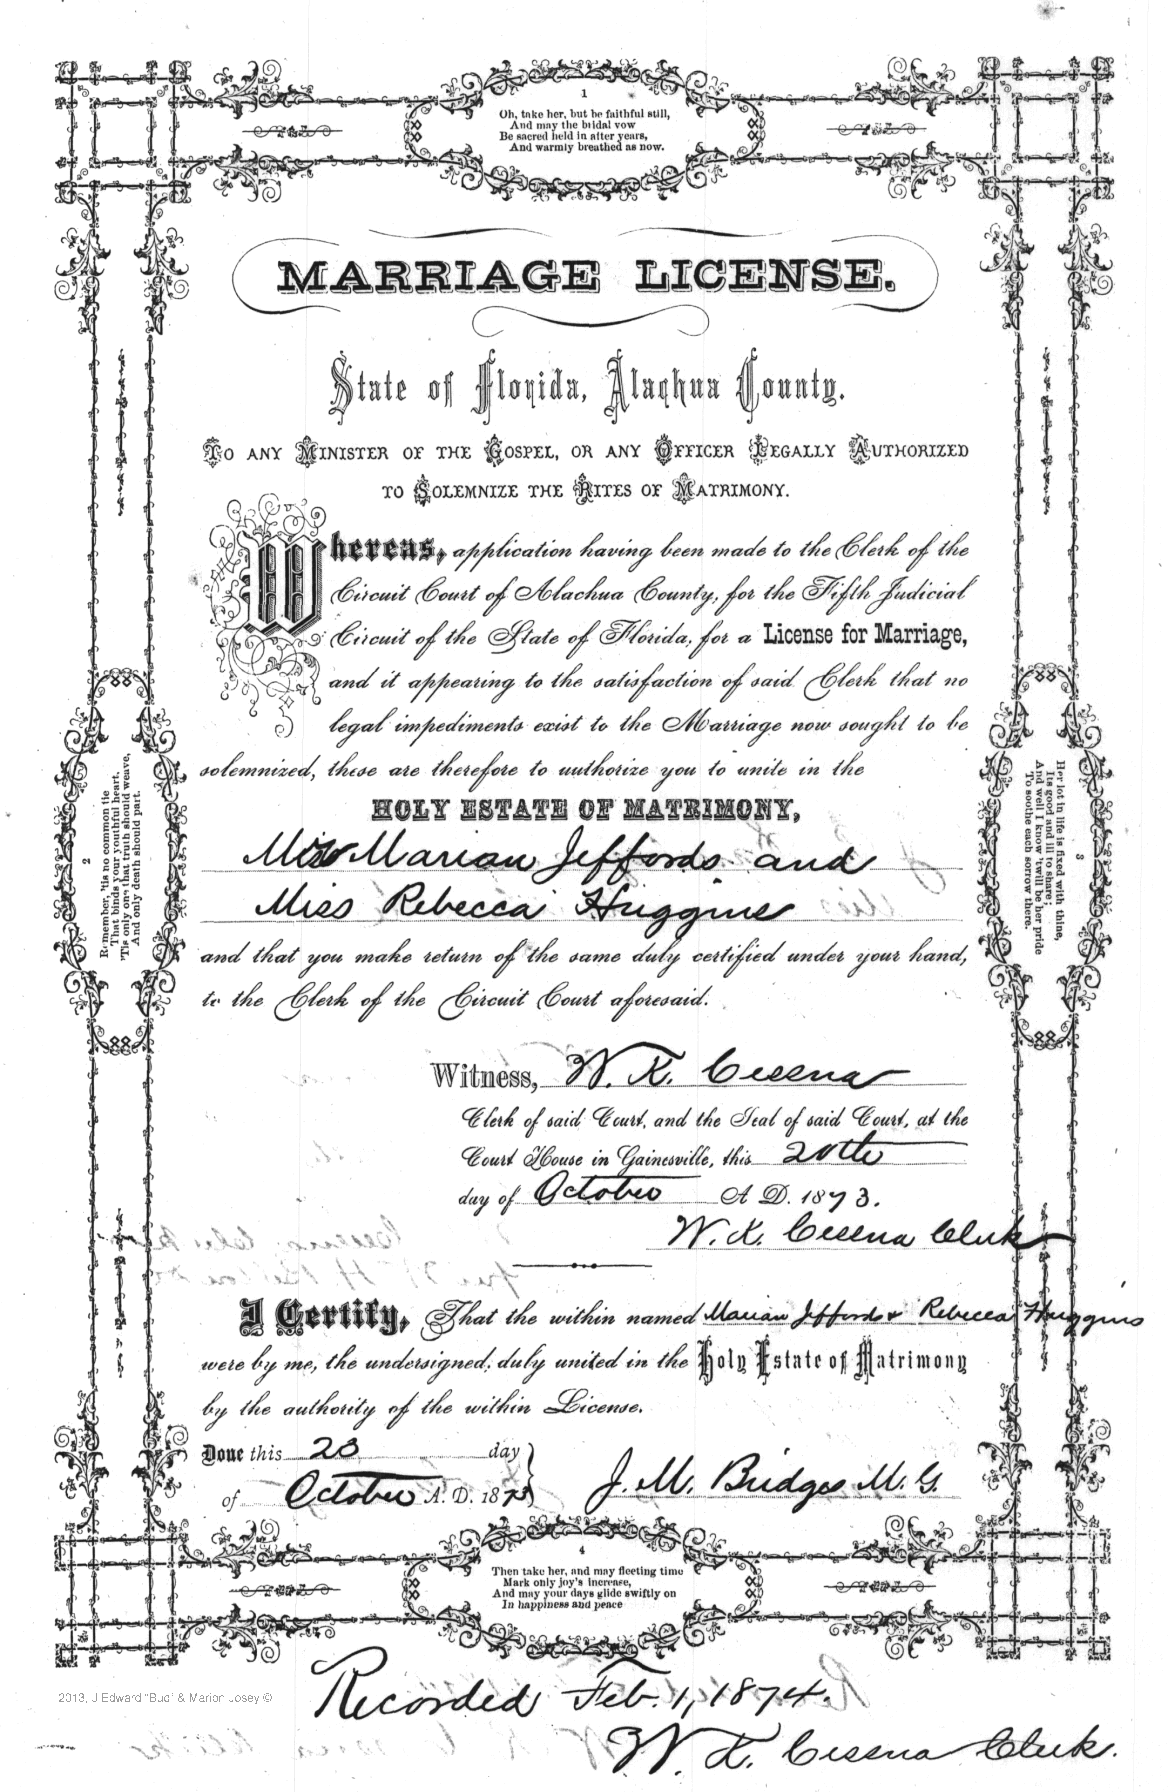 1
Oh, take her, but be faithful still,
And may the bridal vow
Be sacred held in after years,
And warmly breathed as now.
MARRIAGE LICENSE.
State of Florida, Alachua County.
To any Minister of the Gospel, or any Officer Legally Authorized
to Solemnize the Rites of Matrimony.
Whereas, application having been made to the Clerk of the
Circuit Court of Alachua County, for the Fifth Judicial
Circuit of the State of Florida, for a License for Marriage,
and it appearing to the satisfaction of said Clerk that no
legal impediments exist to the Marriage now sought to be
solemnized, these are therefore to authorize you to unite in the
HOLY ESTATE OF MATRIMONY,
Marian Jeffords and
Miss Rebecca Huggins
and that you make return of the same duly certified under your hand,
to the Clerk of the Circuit Court aforesaid.
2
Remember, 'tis no common tie
That binds your youthful heart,
'Tis only one that truth should weave,
And only death should part.
3
Her lot in life is fixed with thine,
Its good and ill to share;
And well I know 'twill be her pride
To soothe each sorrow there.
Witness, W. K. Cessna
Clerk of said Court, and the Seal of said Court, at the
Court House in Gainesville, this 20th
day of October A. D. 1873.
W. K. Cessna Clerk
I Certify, That the within named Marian Jeffords & Rebecca Huggins
were by me, the undersigned, duly united in the Holy Estate of Matrimony
by the authority of the within License.
Done this 23 day
of October A. D. 1873
J. M. Bridges M. G.
4
Then take her, and may fleeting time
Mark only joy's increase,
And may your days glide swiftly on
In happiness and peace
Recorded Feb. 1, 1874.
W. K. Cessna Clerk.
2013, J Edward "Bud" & Marion Josey ©